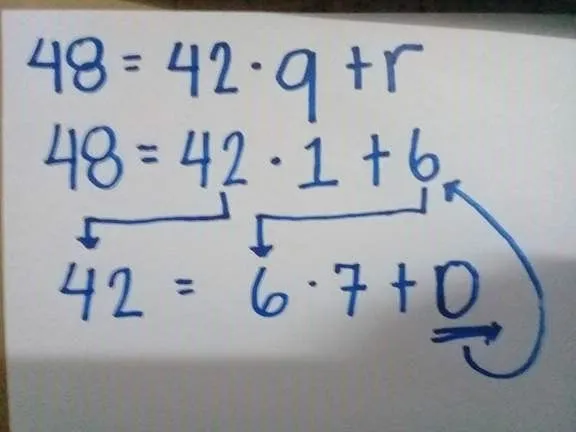 48 = 42 · q + r
48 = 42 · 1 + 6
42 = 6 · 7 + 0